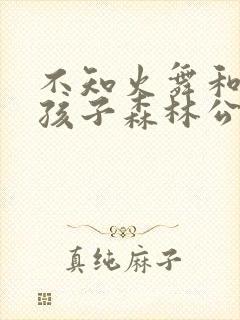 不知火舞和
孩子森林公
真纯麻子